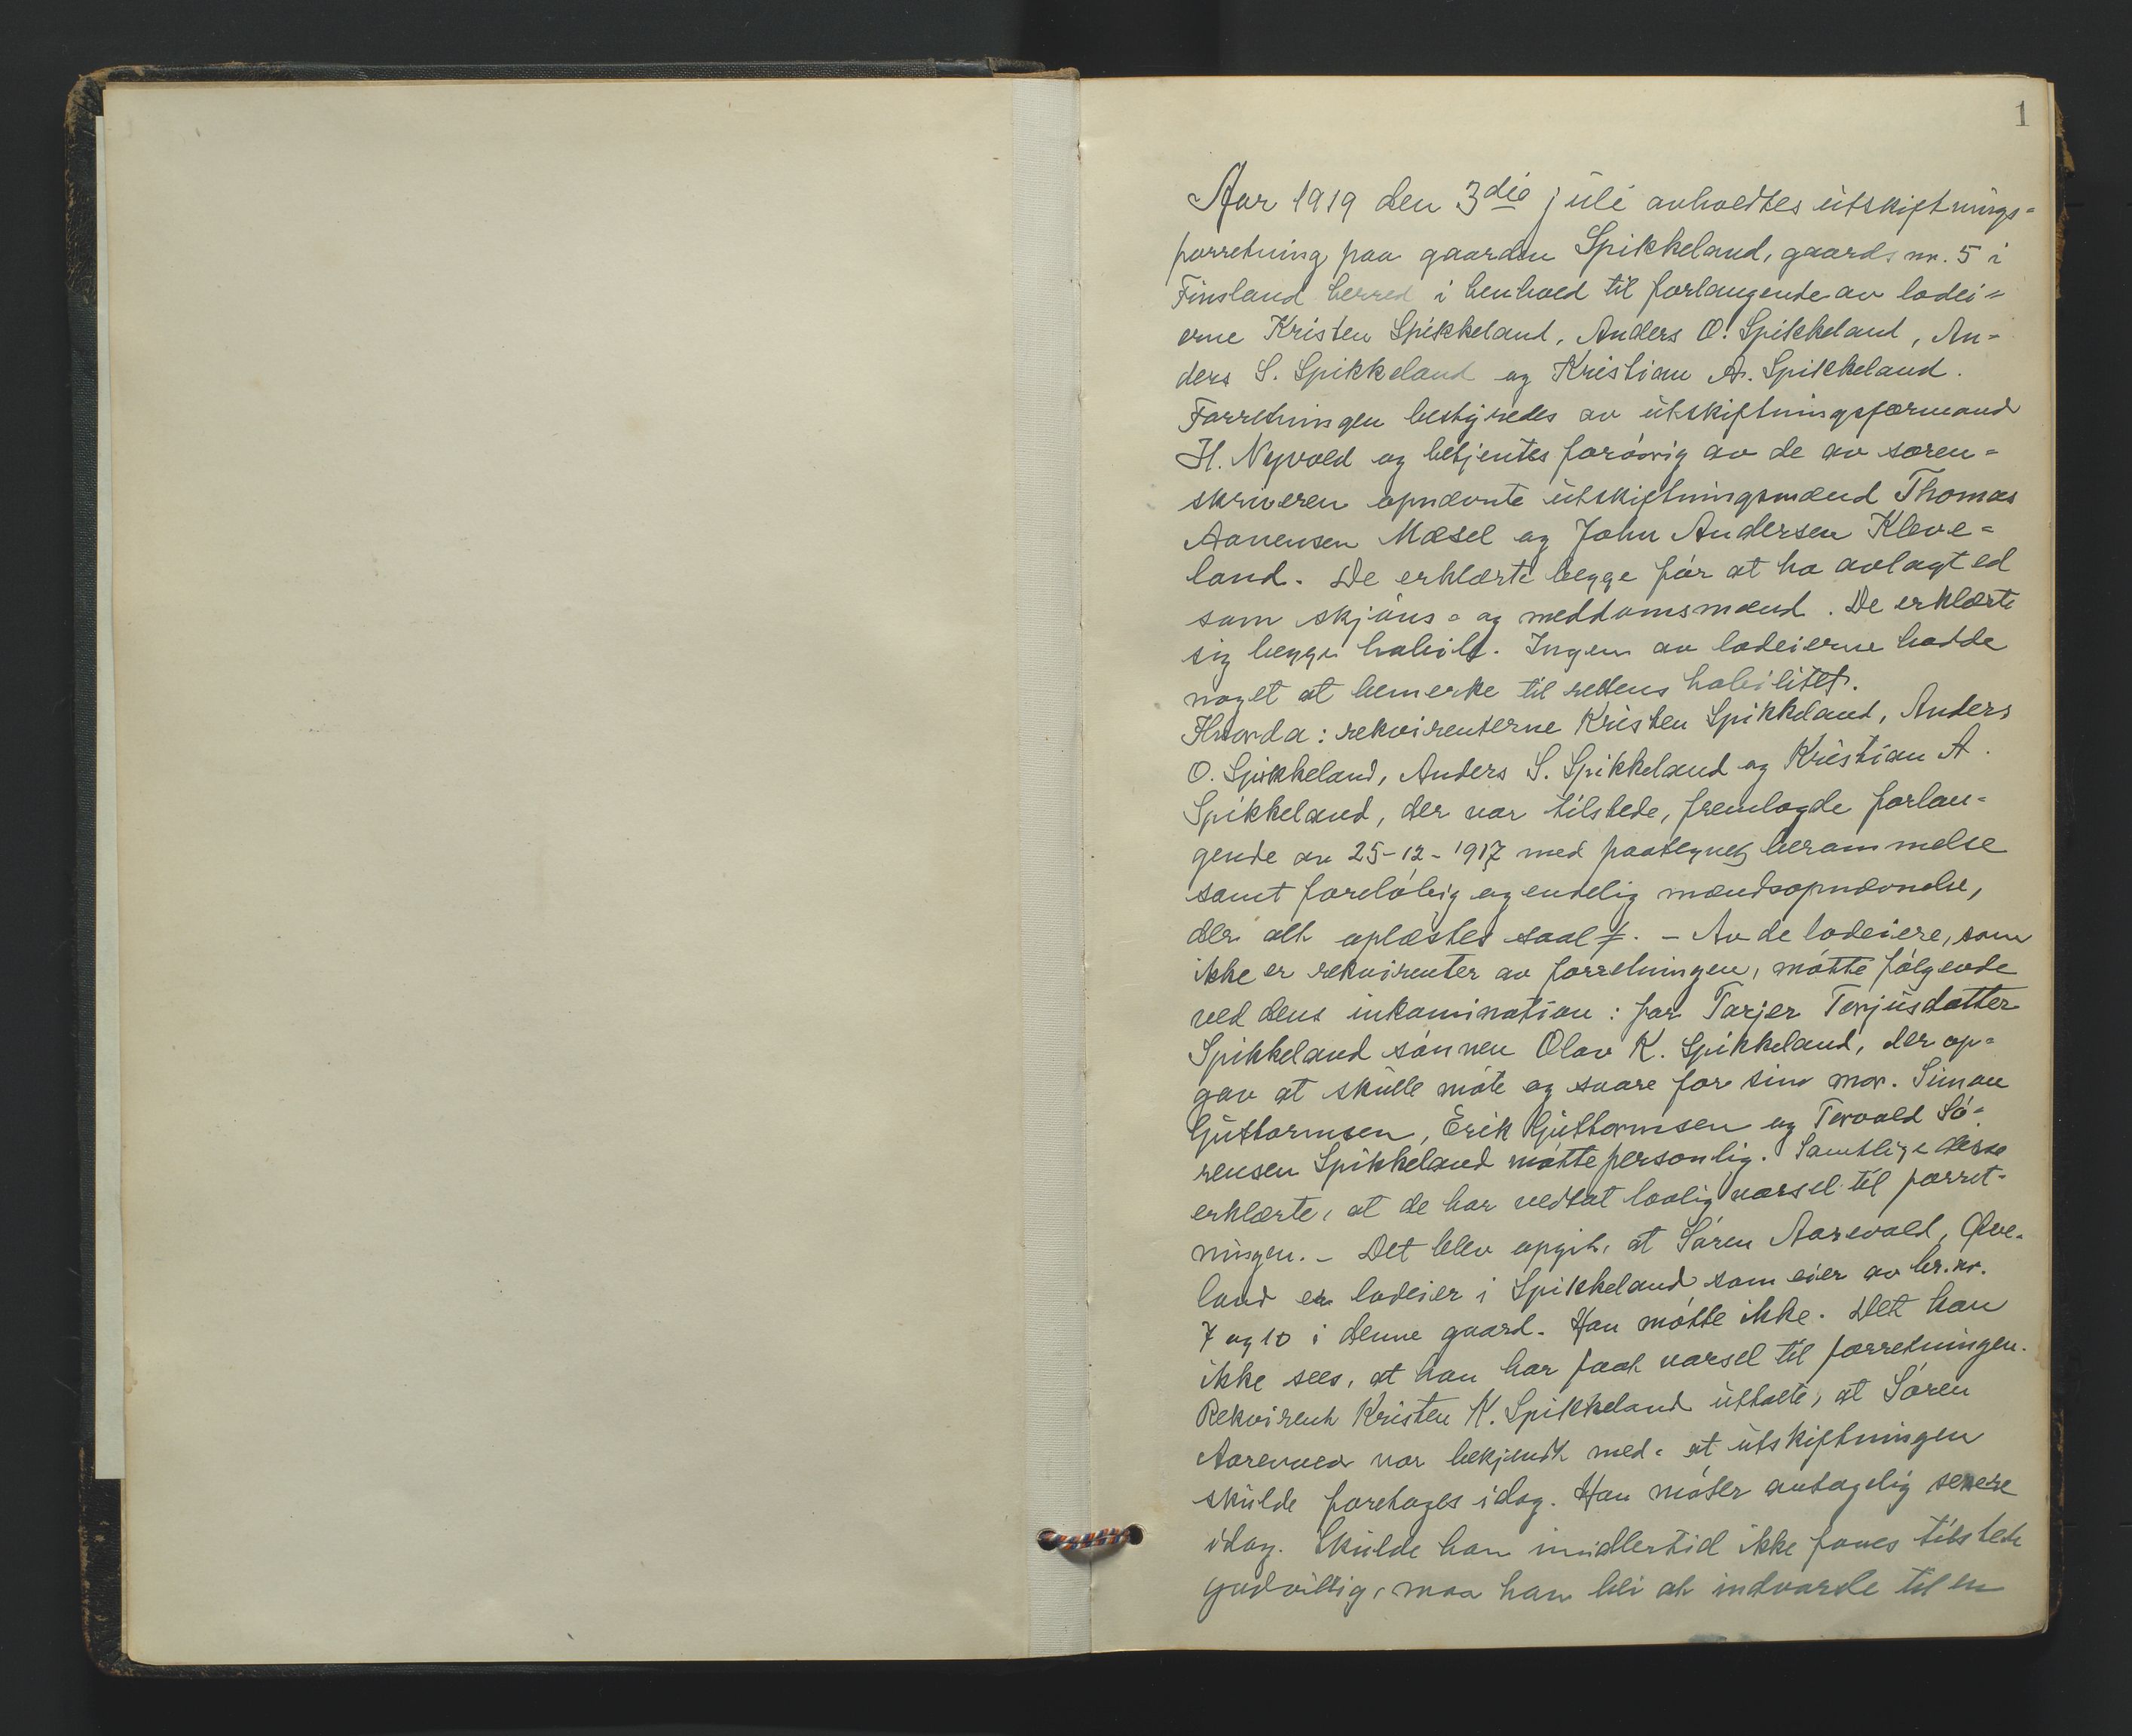 1
Aar 1919 den 3die juli avholdtes utskiftnings=
forretning paa gaarden Spikkeland, gaards nr. 5 i
Finsland herred i henhold til forlangende av lodei=
erne Kristen Spikkeland, Anders O. Spikkeland, An=
ders S. Spikkeland og Kristian A. Spikkeland.
Forretningen bestyredes av utskiftningsformand
H. Nyvold og betjentes forøvrig av de av soren=
skriveren opnævnte utskiftningsmænd Thomas
Aanensen Mæsel og John Andersen Kleve=
land. De erklærte begge før at ha avlagt ed
som skjøns= og meddomsmænd. De erklærte
sig begge habile. Ingen av lodeierne hadde
noget at bemerke til rettens habilitet.
Hvorda: rekvirenterne Kristen Spikkeland, Anders
O. Spikkeland, Anders S. Spikkeland og Kristian A.
Spikkeland, der var tilstede, fremlagde forlan=
gende av 25-12-1917 med paategnet berammelse
samt foreløbig og endelig mændsopnævnelse,
der alt oplæstes saal. - Av de lodeiere, som
ikke er rekvirenter av forretningen, møtte følgende
ved dens inkamination: for Tarjer Terjusdatter
Spikkeland sønnen Olav K. Spikkeland, der op=
gav at skulle møte og svare for sin mor. Simon
Guttormsen, Erik Guttormsen og Torvald Sø=
rensen Spikkeland møtte personlig. Samtlige disse
erklærte, at de har vedtat lovlig varsel til forret=
ningen. - Det blev opgit, at Søren Aarevold, Øve=
land er lodeier i Spikkeland som eier av br.nr.
7 og 10 i denne gaard. Han møtte ikke. Det kan
ikke sees, at han har faat varsel til forretningen.
Rekvirent Kristen K. Spikkeland uttalte, at Søren
Aarevold var bekjendt med at utskiftningen
skulde foretages idag. Han møter antagelig senere
idag. Skulde han imidlertid ikke faaes tilstede
godvillig, maa han bli at indvarsle til en